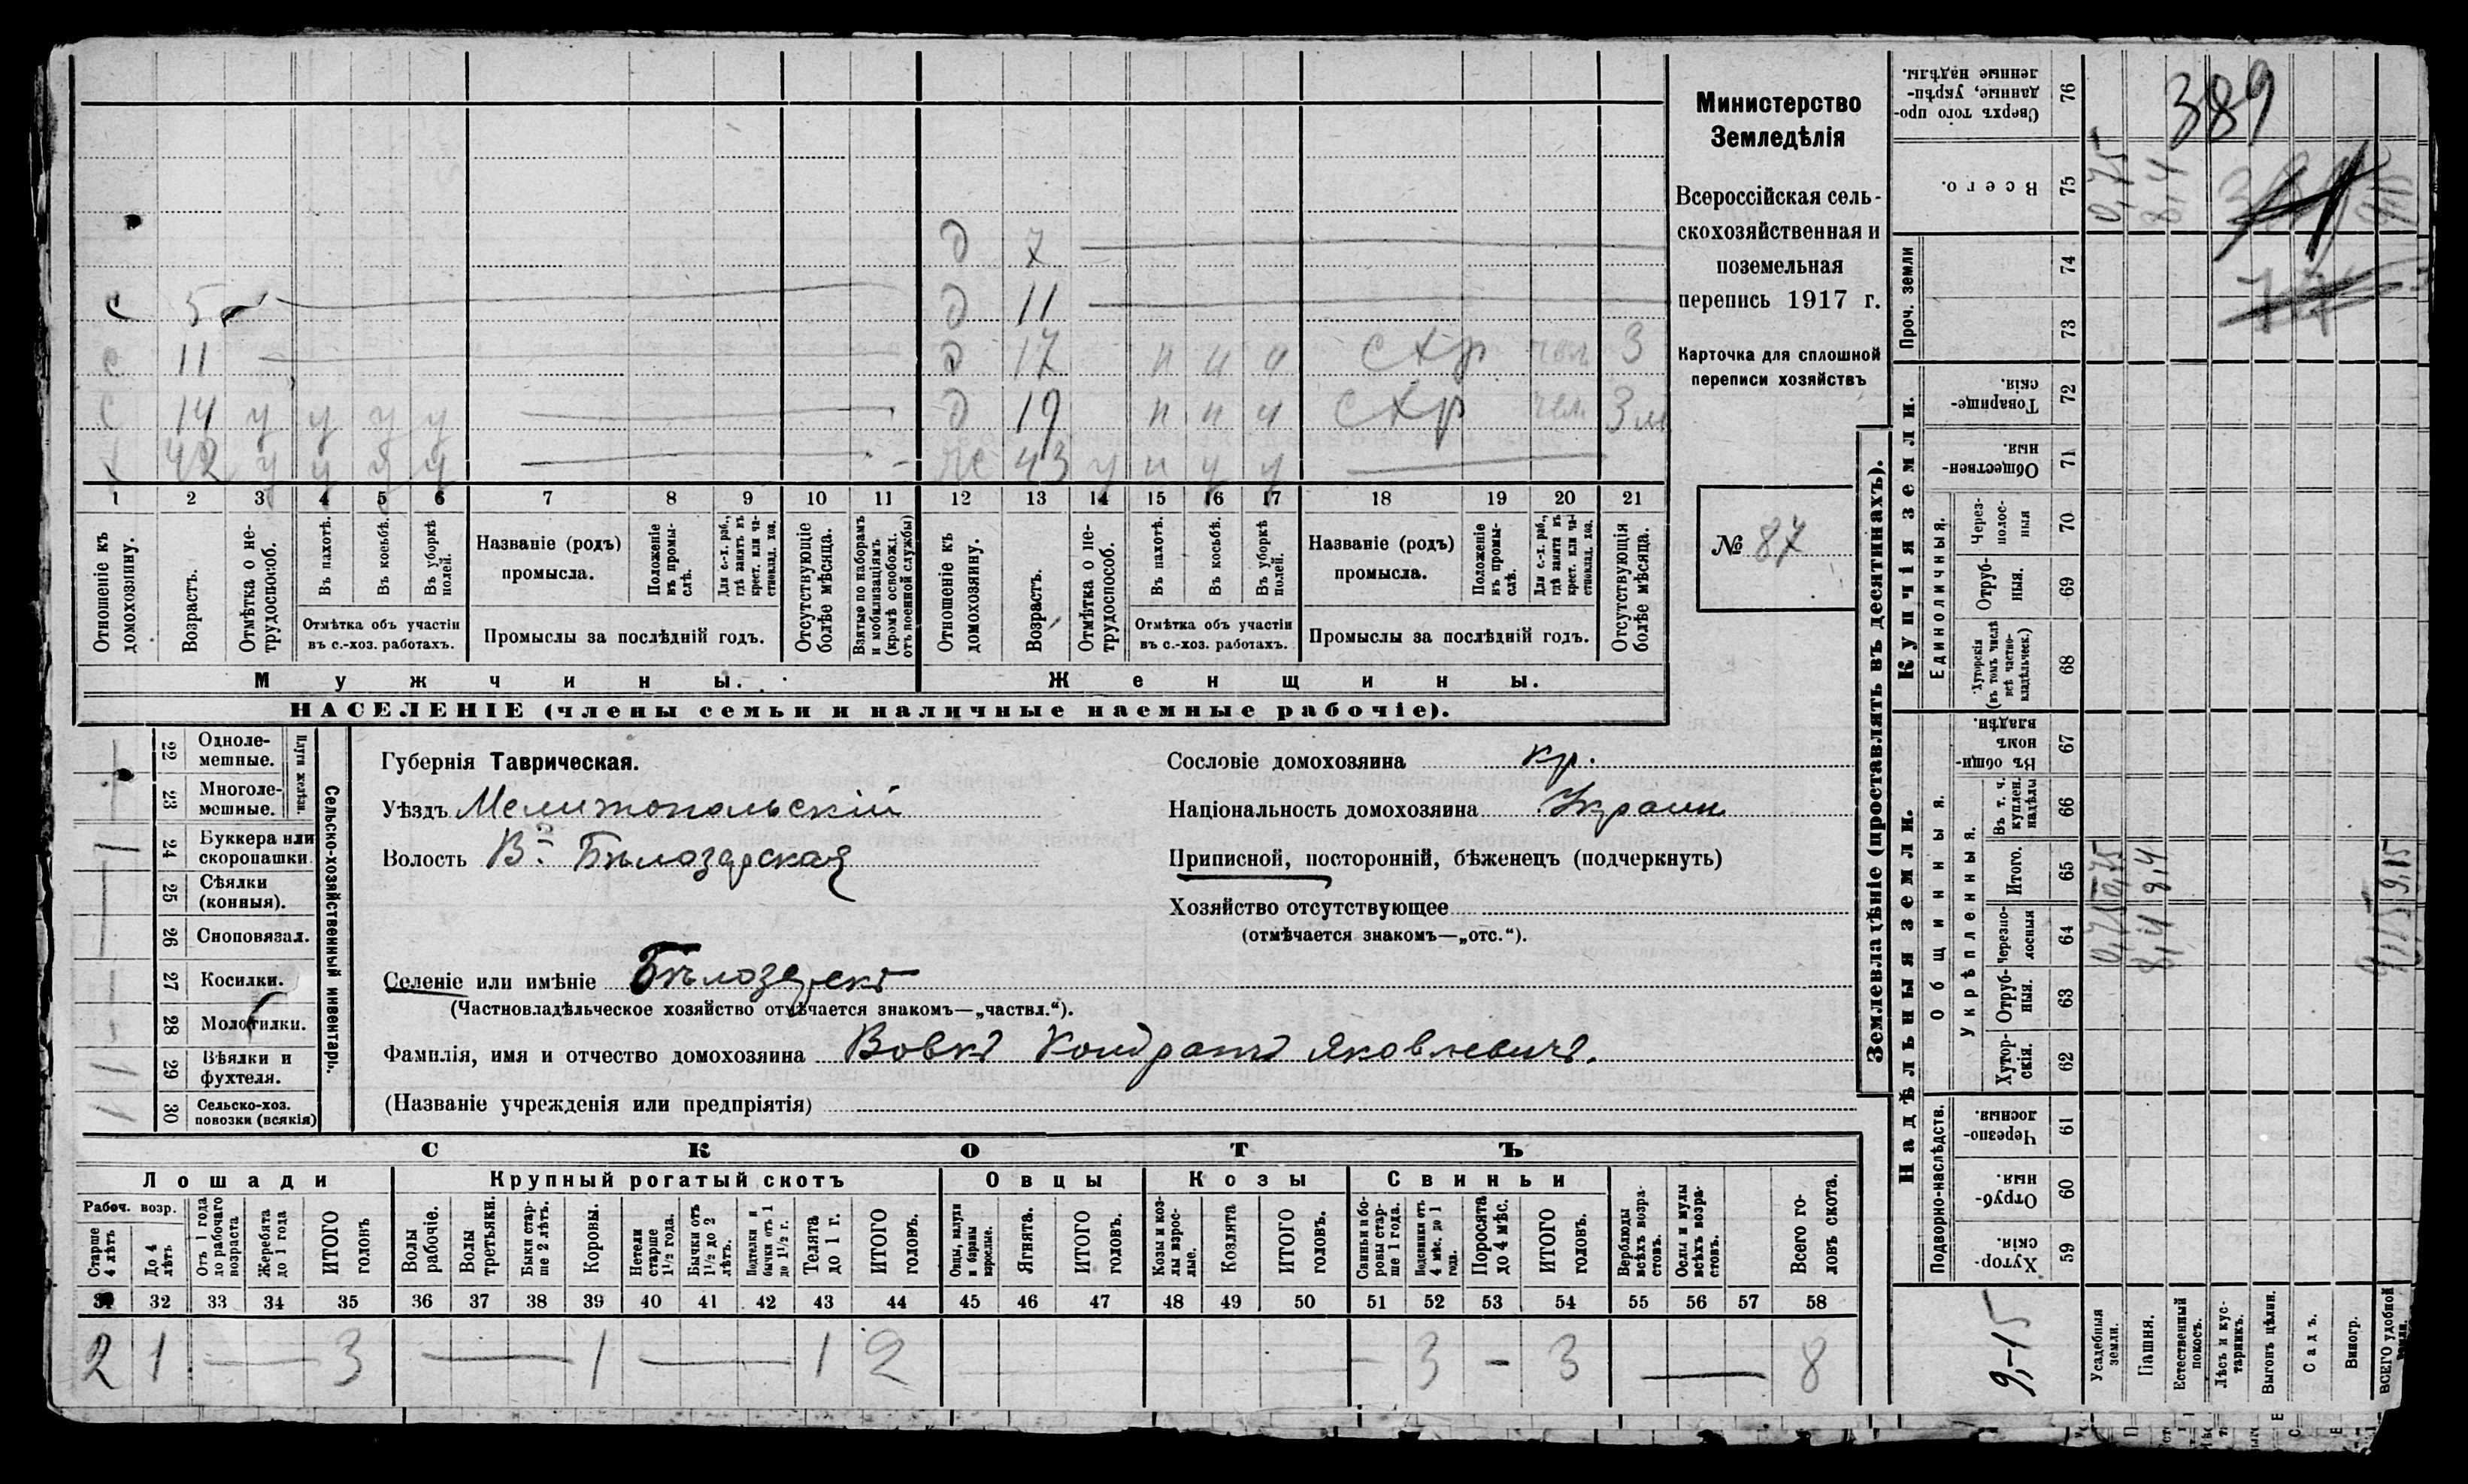 д 7
с 5 д 11
с 11 д 17 и и и схр чел 3
с 14 у у у у д 19 и и и схр чел 3 м
х 42 у у у у ж 43 у и у у
1 2 3 4 5 6 7 8 9 10 11 12 13 14 15 16 17 18 19 20 21
Отношеніе къ домохозяину.
Возрастъ.
Отмѣтка о не-трудоспособ.
Въ пахотѣ.
Въ косьбѣ.
Въ уборкѣ полей.
Отмѣтка объ участіи
въ с.-хоз. работахъ.
Названіе (родъ)
промысла.
Положеніе въ промы-слѣ.
Для с.-х. раб., гдѣ занятъ въ крест. или ча-стновлад. хоз.
Промыслы за послѣдній годъ.
Отсутствующіе болѣе мѣсяца.
Взятые по наборамъ и мобилизаціямъ (кромѣ освобожд. отъ военной службы)
Отношеніе къ домохозяину.
Возрастъ.
Отмѣтка о не-трудоспособ.
Въ пахотѣ.
Въ косьбѣ.
Въ уборкѣ полей.
Отмѣтка объ участіи
въ с.-хоз. работахъ.
Названіе (родъ)
промысла.
Положеніе въ промы-слѣ.
Для с.-х. раб., гдѣ занята въ крест. или ча-стновлад. хоз.
Промыслы за послѣдній годъ.
Отсутствующія болѣе мѣсяца.
Мужчины. Женщины.
НАСЕЛЕНІЕ (члены семьи и наличные наемные рабочіе).
Министерство
Земледѣлія
Всероссійская сель-
скохозяйственная и
поземельная
перепись 1917 г.
Карточка для сплошной
переписи хозяйствъ
№ 87
22 Одноле-мешные.
23 Многоле-мешные.
Плуги желѣзн.
1 24 Буккера или скоропашки.
25 Сѣялки (конныя).
26 Сноповязал.
27 Косилки.
28 Молотилки.
1 29 Вѣялки и фухтеля.
1 30 Сельско-хоз. повозки (всякія)
Сельско-хозяйственный инвентарь.
Губернія Таврическая.
Уѣздъ Мелитопольскій
Волость В. Бѣлозерская
Селеніе или имѣніе Бѣлозерка
(Частновладѣльческое хозяйство отмѣчается знакомъ—„частвл.“).
Фамилія, имя и отчество домохозяина Вовкъ Кондратъ Яковлевичъ.
(Названіе учрежденія или предпріятія)
Сословіе домохозяина кр.
Національность домохозяина Украин
Приписной, посторонній, бѣженецъ (подчеркнуть)
Хозяйство отсутствующее
(отмѣчается знакомъ—„отс.“).
СКОТЪ
Лошади Крупный рогатый скотъ Овцы Козы Свиньи
Рабоч. возр.
Старше 4 лѣтъ
До 4 лѣтъ
Отъ 1 года до рабочаго возраста
Жеребята до 1 года
ИТОГО головъ
Волы рабочіе.
Волы третьяки.
Быки стар-ше 2 лѣтъ.
Коровы.
Нетели старше 1½ года.
Бычки отъ 1½ до 2 лѣтъ.
Подтелки и бычки отъ 1 до 1½ г.
Телята до 1 г.
ИТОГО головъ.
Овцы, валухи и бараны взрослые.
Ягнята.
ИТОГО головъ.
Козы и коз-лы взрос-лые.
Козлята
ИТОГО головъ.
Свиньи и бо-ровы стар-ше 1 года.
Подсвинки отъ 4 мѣс. до 1 года.
Поросята до 4 мѣс.
ИТОГО головъ.
Верблюды всѣхъ возра-стовъ.
Ослы и мулы всѣхъ возра-стовъ.
Всего го-ловъ скота.
31 32 33 34 35 36 37 38 39 40 41 42 43 44 45 46 47 48 49 50 51 52 53 54 55 56 57 58
2 1 — 3 — 1 — 1 2 — 3 - 3 — 8
Землевладѣніе (проставлять въ десятинахъ).
Сверхъ того про-данные, укрѣп-ленные надѣлы. 76
389
Всего. 75 0,75 8,4
Проч. земли 74 73
Купчія земли.
Товарище-скія. 72
Обществен-ныя. 71
Единоличныя.
Через-полос-ныя 70
Отруб-ныя. 69
Хуторскія (въ томъ числѣ всѣ частно-владѣльческ.) 68
Надѣльныя земли.
Общинныя.
Въ общи-номъ владѣн. 67
Укрѣпленныя.
Въ т. ч. куплен. надѣлы 66
Итого. 65 0,75 8,4 9,15
Черезпо-лосныя 64 0,75 8,4 9,15
Отруб-ныя. 63
Хутор-скія. 62
Подворно-наслѣдств.
Черезпо-лосныя 61
Отруб-ныя. 60
Хутор-скія. 59
9,-15
Усадебныя земли.
Пашня.
Естественный покосъ.
Лѣсъ и кус-тарникъ.
Выгонъ цѣлин.
Садъ.
Виногр.
ВСЕГО удобной земли.